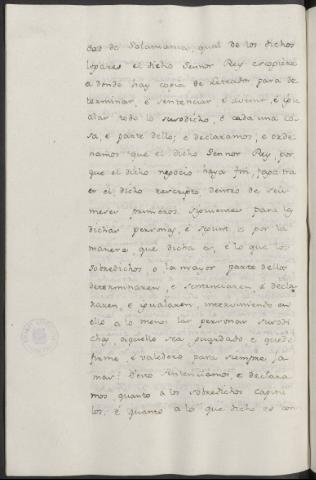 dad de Salamanca, qual de los dichos
lugares el dicho Sennor Rey escogiere
a donde hay copia de Letrados para de
terminar, é sentenciar é avenir, é igu
alar todo lo susodicho, é cada una co
sa, é parte dello; e declaramos, e orde
namos que el dicho Sennor Rey, por
que el dicho negocio haya fin, faga tra
er el dicho dentro de seis
meses primeros siguientes para las
dichas personas, é por la
manera que dicha es, é lo que los
sobredichos o la mayor parte dellos
determinaren, e sentenciaren, é decla
raren, e igualaren, interviniendo en
ello a lo menos las personas susodi
chas, aquello sea guardado e quede
firme, é valedero para siempre ja
mas: Otro sentenciamos, e declara
mos quanto a los sobredichos capitu
los, é quanto a lo que dicho es con